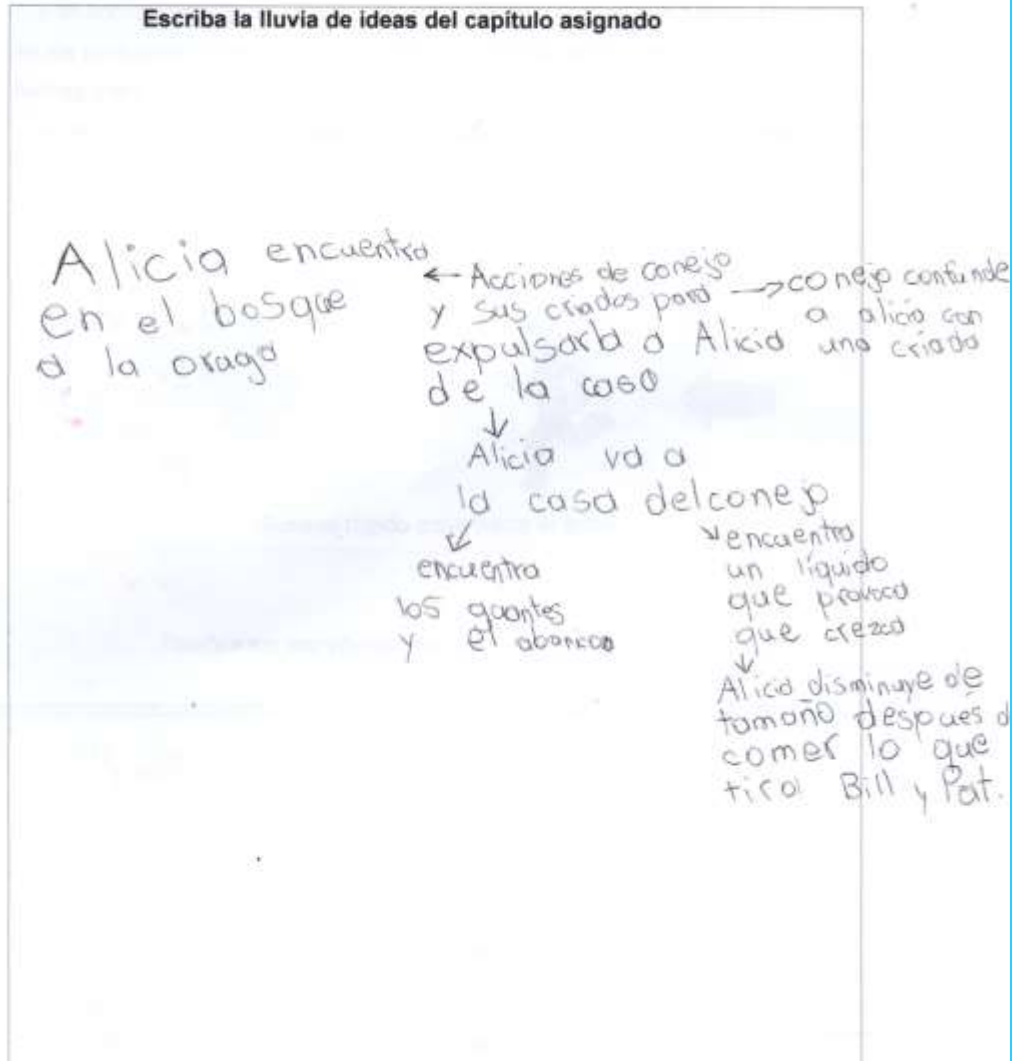 Escriba la lluvia de ideas del capítulo asignado
Alicia encuentra
en el bosque
a la oraga
← Acciones de conejo
y sus criados para
expulsarla a Alicia
de la casa
→ conejo confunde
a alicia con
una criada
↓
Alicia va a
la casa delconejo
encuentra
los guantes
y el abanico
encuentra
un líquido
que provoca
que crezca
Alicia disminuye de
tamaño después d
comer lo que
tiro Bill y Pat.